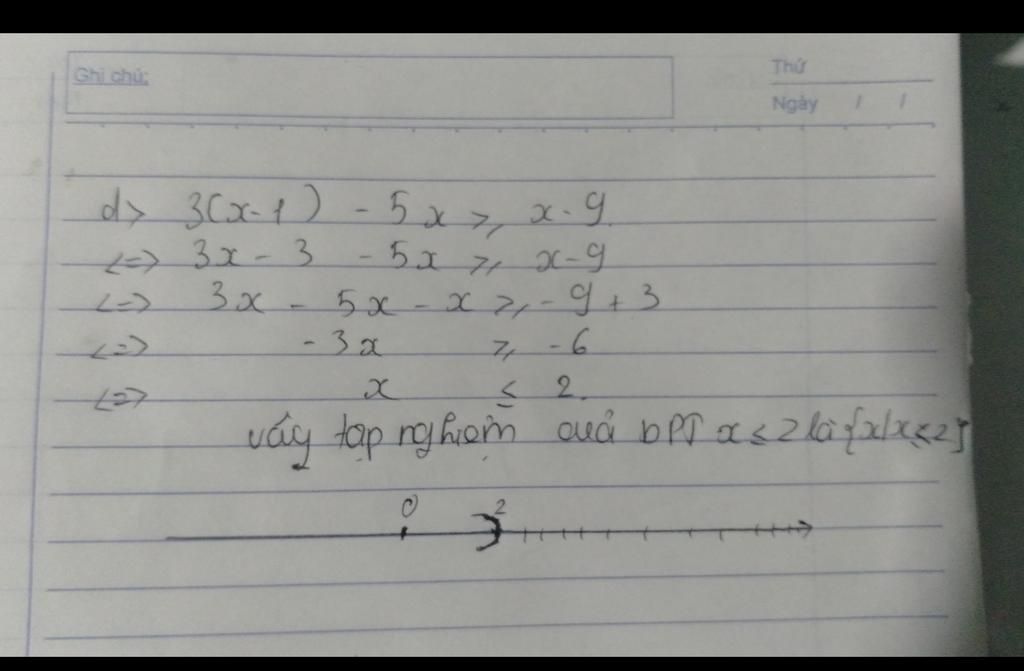 Ghi chú:
Thứ
Ngày / /
d> 3(x-1) - 5x ≥ x - 9
<=> 3x - 3 - 5x ≥ x - 9
<=> 3x - 5x - x ≥ - 9 + 3
<=> - 3x ≥ - 6
<=> x ≤ 2.
vấy tập nghiệm của bPT x ≤ 2 là {x/x ≤ 2}
0 2